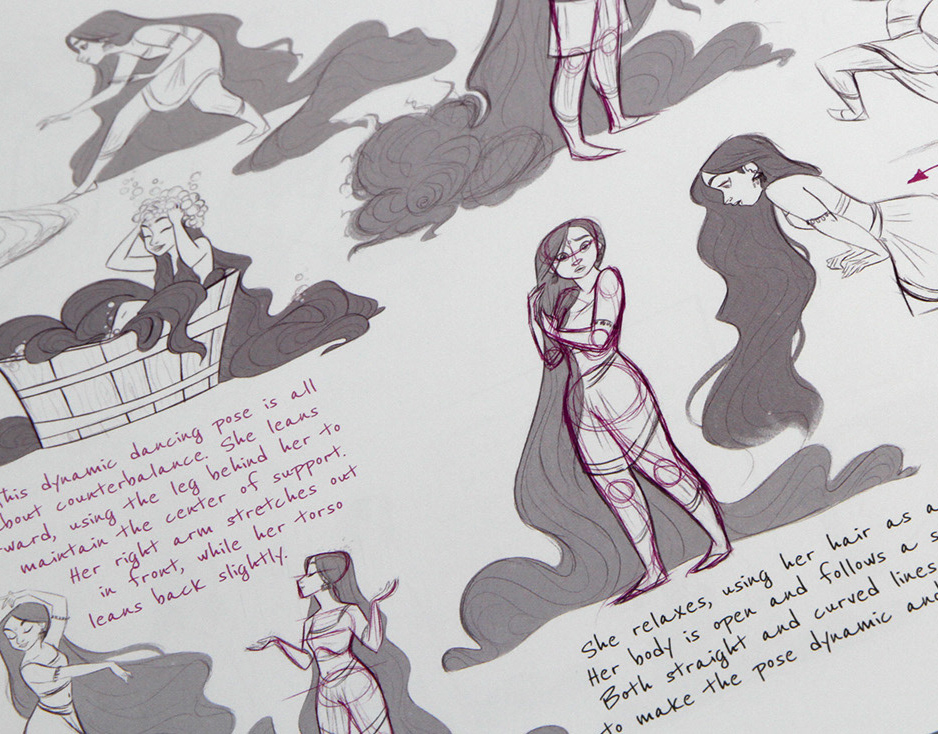 This dynamic dancing pose is all
about counterbalance. She leans
forward, using the leg behind her to
maintain the center of support.
Her right arm stretches out
in front, while her torso
leans back slightly.
She relaxes, using her hair as a
Her body is open and follows a
Both straight and curved lines
to make the pose dynamic and